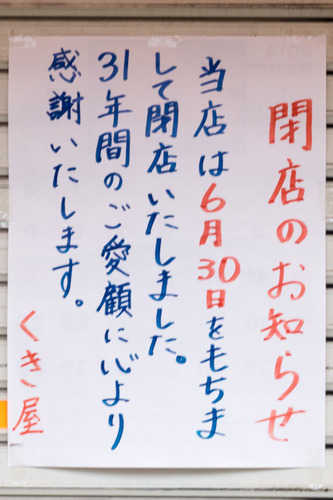 閉店のお知らせ
当店は6月30日をもちま
して閉店いたしました。
31年間のご愛顧に心より
感謝いたします。
くきご屋